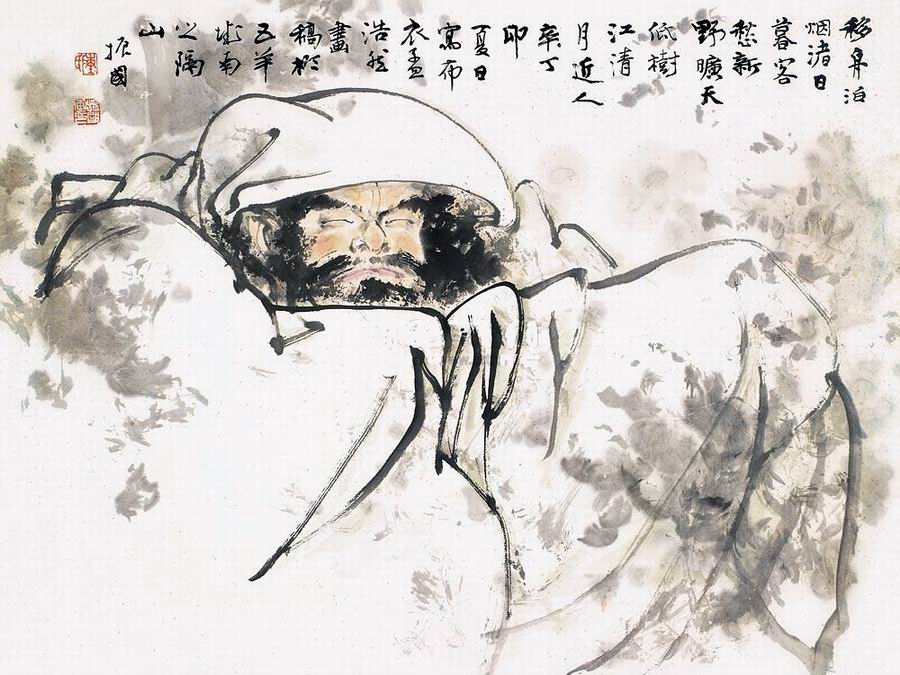 移舟泊
烟渚日
暮客
愁新
野曠天
低樹
江清
月近人
辛丁
卯
夏日
寫布
衣孟
浩然
畫
稿於
五羊
城南
之隅
山
振國